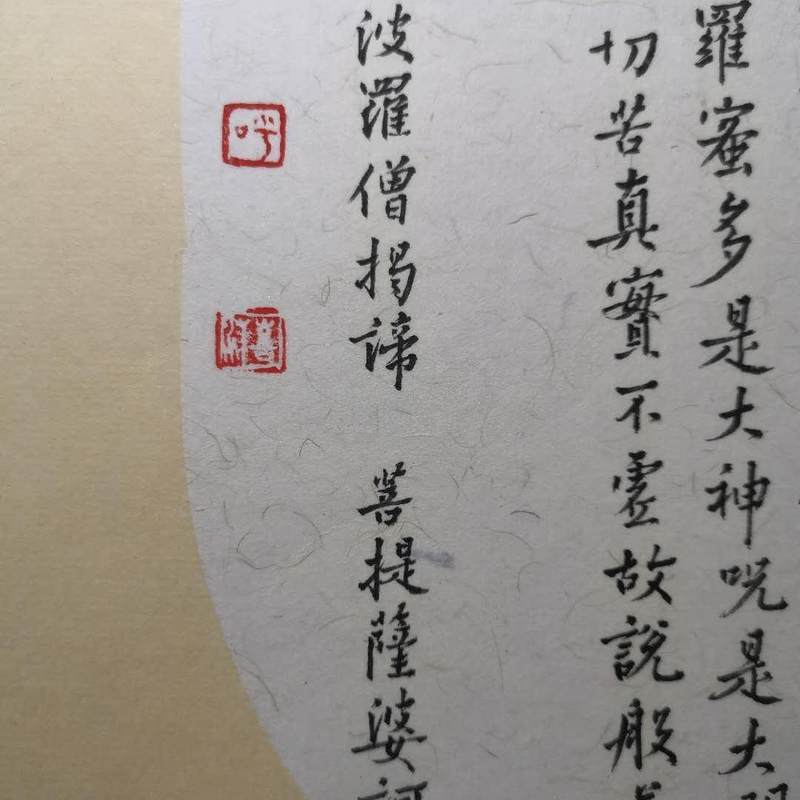 羅蜜多是大神咒是大明
切苦真實不虛故說般
波羅僧揭諦 菩提薩婆訶
呼